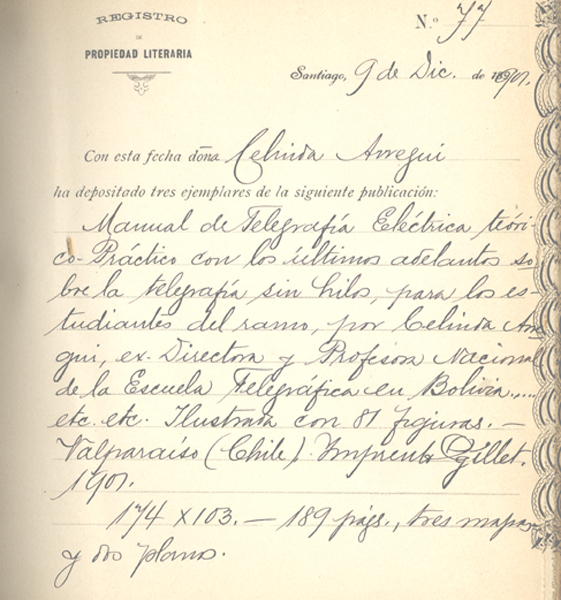 REGISTRO
DE
PROPIEDAD LITERARIA
N.º 77
Santiago, 9 de Dic. de 1901.
Con esta fecha doña Celinda Arregui
ha depositado tres ejemplares de la siguiente publicación:
Manual de Telegrafía Eléctrica teóri-
co-Práctico con los últimos adelantos so-
bre la telegrafía sin hilos, para los es-
tudiantes del ramo, por Celinda Arre-
gui, ex-Directora y Profesora Nacional
de la Escuela Telegráfica en Bolivia....
etc. etc. Ilustrada con 81 figuras. —
Valparaíso (Chile). Imprenta Gillet.
1901.
174 x 103. — 189 págs., tres mapas
y dos planos.